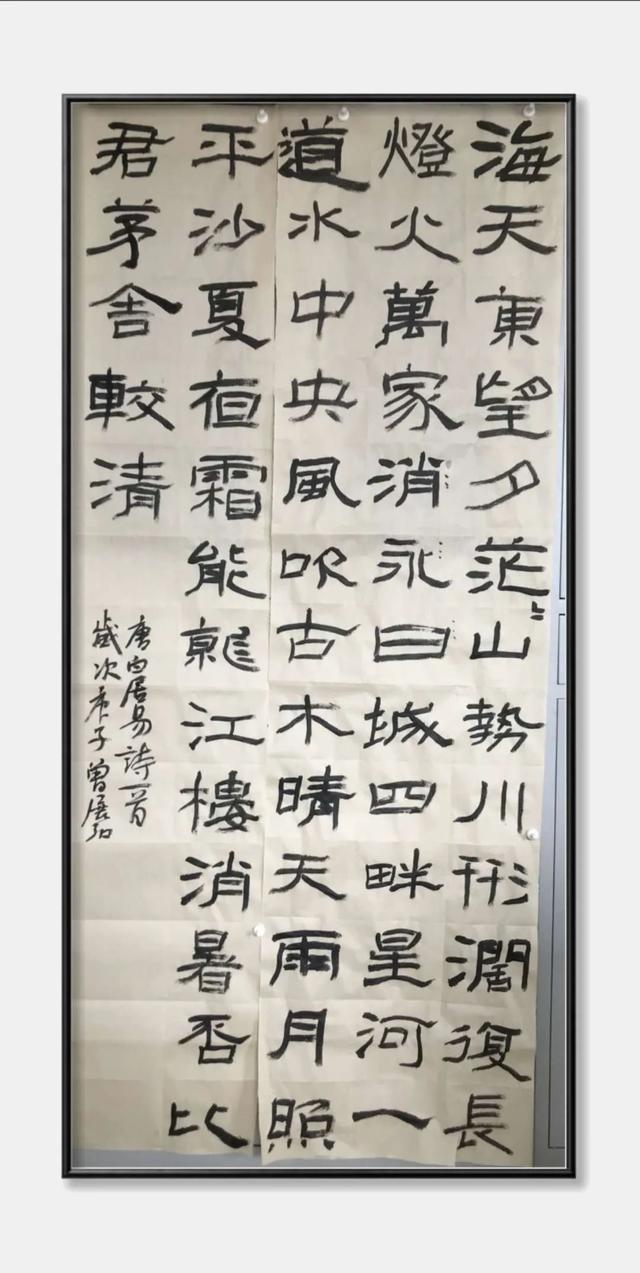 海天東望夕茫〻山勢川形濶復長
燈火萬家消永日城四畔星河一
道水中央風吹古木晴天雨月照
平沙夏夜霜能就江樓消暑否比
君茅舍較清
唐白居易詩一首
歲次庚子曾展